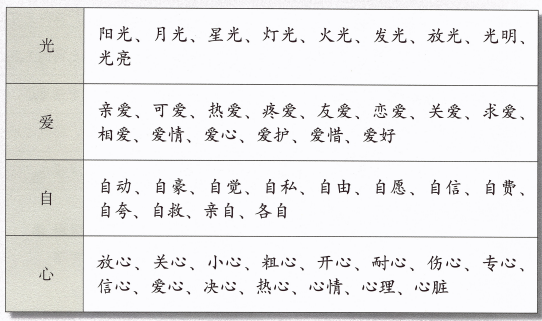 光
阳光、月光、星光、灯光、火光、发光、放光、光明、
光亮
爱
亲爱、可爱、热爱、疼爱、友爱、恋爱、关爱、求爱、
相爱、爱情、爱心、爱护、爱惜、爱好
自
自动、自豪、自觉、自私、自由、自愿、自信、自费、
自夸、自救、亲自、各自
心
放心、关心、小心、粗心、开心、耐心、伤心、专心、
信心、爱心、决心、热心、心情、心理、心脏